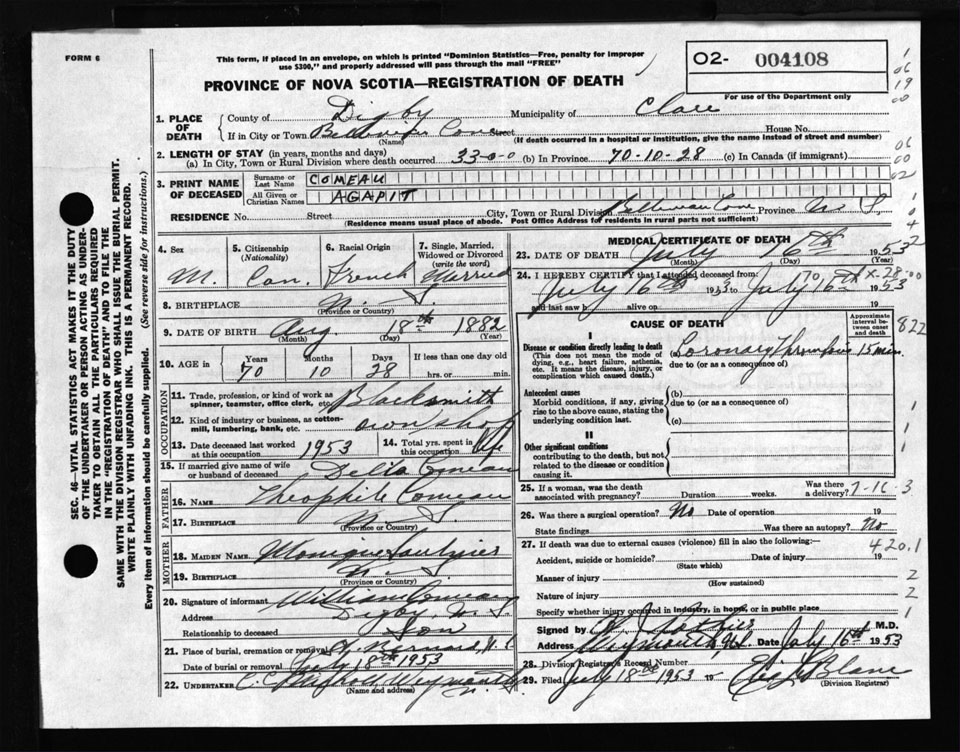 FORM 6
This form, if placed in an envelope, on which is printed "Dominion Statistics—Free, penalty for improper
use $300," and properly addressed will pass through the mail "FREE"
O2- 004108
For use of the Department only
PROVINCE OF NOVA SCOTIA—REGISTRATION OF DEATH
1. PLACE OF DEATH
County of Digby Municipality of Clare
If in City or Town Belliveau Cove Street House No.
(Name) (If death occurred in a hospital or institution, give the name instead of street and number)
2. LENGTH OF STAY (in years, months and days)
(a) In City, Town or Rural Division where death occurred 33-0-0 (b) In Province 70-10-28 (c) In Canada (if immigrant)
3. PRINT NAME OF DECEASED
Surname or Last Name COMEAU
All Given or Christian Names AGAPIT
RESIDENCE No. Street City, Town or Rural Division Belliveau Cove Province N. S.
(Residence means usual place of abode. Post Office Address for residents in rural parts not sufficient)
4. Sex M.
5. Citizenship (Nationality) Can.
6. Racial Origin French
7. Single, Married, Widowed or Divorced (write the word) Married
8. BIRTHPLACE N. S.
(Province or Country)
9. DATE OF BIRTH Aug. 18th 1882
(Month) (Day) (Year)
10. AGE in Years 70 Months 10 Days 28 If less than one day old hrs. or min.
OCCUPATION
11. Trade, profession, or kind of work as spinner, teamster, office clerk, etc. Blacksmith
12. Kind of industry or business, as cotton-mill, lumbering, bank, etc. own shop
13. Date deceased last worked at this occupation 1953
14. Total yrs. spent in this occupation Life
15. If married give name of wife or husband of deceased Delia Comeau
FATHER
16. NAME Theophile Comeau
17. BIRTHPLACE N. S.
(Province or Country)
MOTHER
18. MAIDEN NAME Monique Saulnier
19. BIRTHPLACE N. S.
(Province or Country)
20. Signature of informant William Comeau
Address Digby N. S.
Relationship to deceased Son
21. Place of burial, cremation or removal St. Bernard, N. S.
Date of burial or removal July 18th 1953
22. UNDERTAKER Weymouth N. S.
(Name and address)
MEDICAL CERTIFICATE OF DEATH
23. DATE OF DEATH July 16th 1953
(Month) (Day) (Year)
24. I HEREBY CERTIFY that I attended deceased from:
July 16th 1953 to July 16th 1953
and last saw h alive on 19
CAUSE OF DEATH
Approximate interval between onset and death
I
Disease or condition directly leading to death
(This does not mean the mode of dying, e.g., heart failure, asthenia, etc. It means the disease, injury, or complication which caused death.)
(a) Coronary Thrombosis 15 min.
due to (or as a consequence of)
Antecedent causes
Morbid conditions, if any, giving rise to the above cause, stating the underlying condition last.
(b)
due to (or as a consequence of)
(c)
II
Other significant conditions
contributing to the death, but not related to the disease or condition causing it.
25. If a woman, was the death associated with pregnancy? Duration weeks. Was there a delivery?
26. Was there a surgical operation? No Date of operation 19
State findings Was there an autopsy? No
27. If death was due to external causes (violence) fill in also the following:—
Accident, suicide or homicide? Date of injury 19
(State which)
Manner of injury
(How sustained)
Nature of injury
Specify whether injury occurred in industry, in home, or in public place
Signed by M.D.
Address Weymouth N.S. Date July 16th 1953
28. Division Registrar's Record Number
29. Filed July 18th 1953 LeBlanc
(Division Registrar)
7-16-3
420.1
SEC. 46—VITAL STATISTICS ACT MAKES IT THE DUTY
OF THE UNDERTAKER OR PERSON ACTING AS UNDER-
TAKER TO OBTAIN ALL THE PARTICULARS REQUIRED
IN THE "REGISTRATION OF DEATH" AND TO FILE THE
SAME WITH THE DIVISION REGISTRAR WHO SHALL ISSUE THE BURIAL PERMIT.
WRITE PLAINLY WITH UNFADING INK. THIS IS A PERMANENT RECORD.
Every item of information should be carefully supplied. (See reverse side for instructions.)